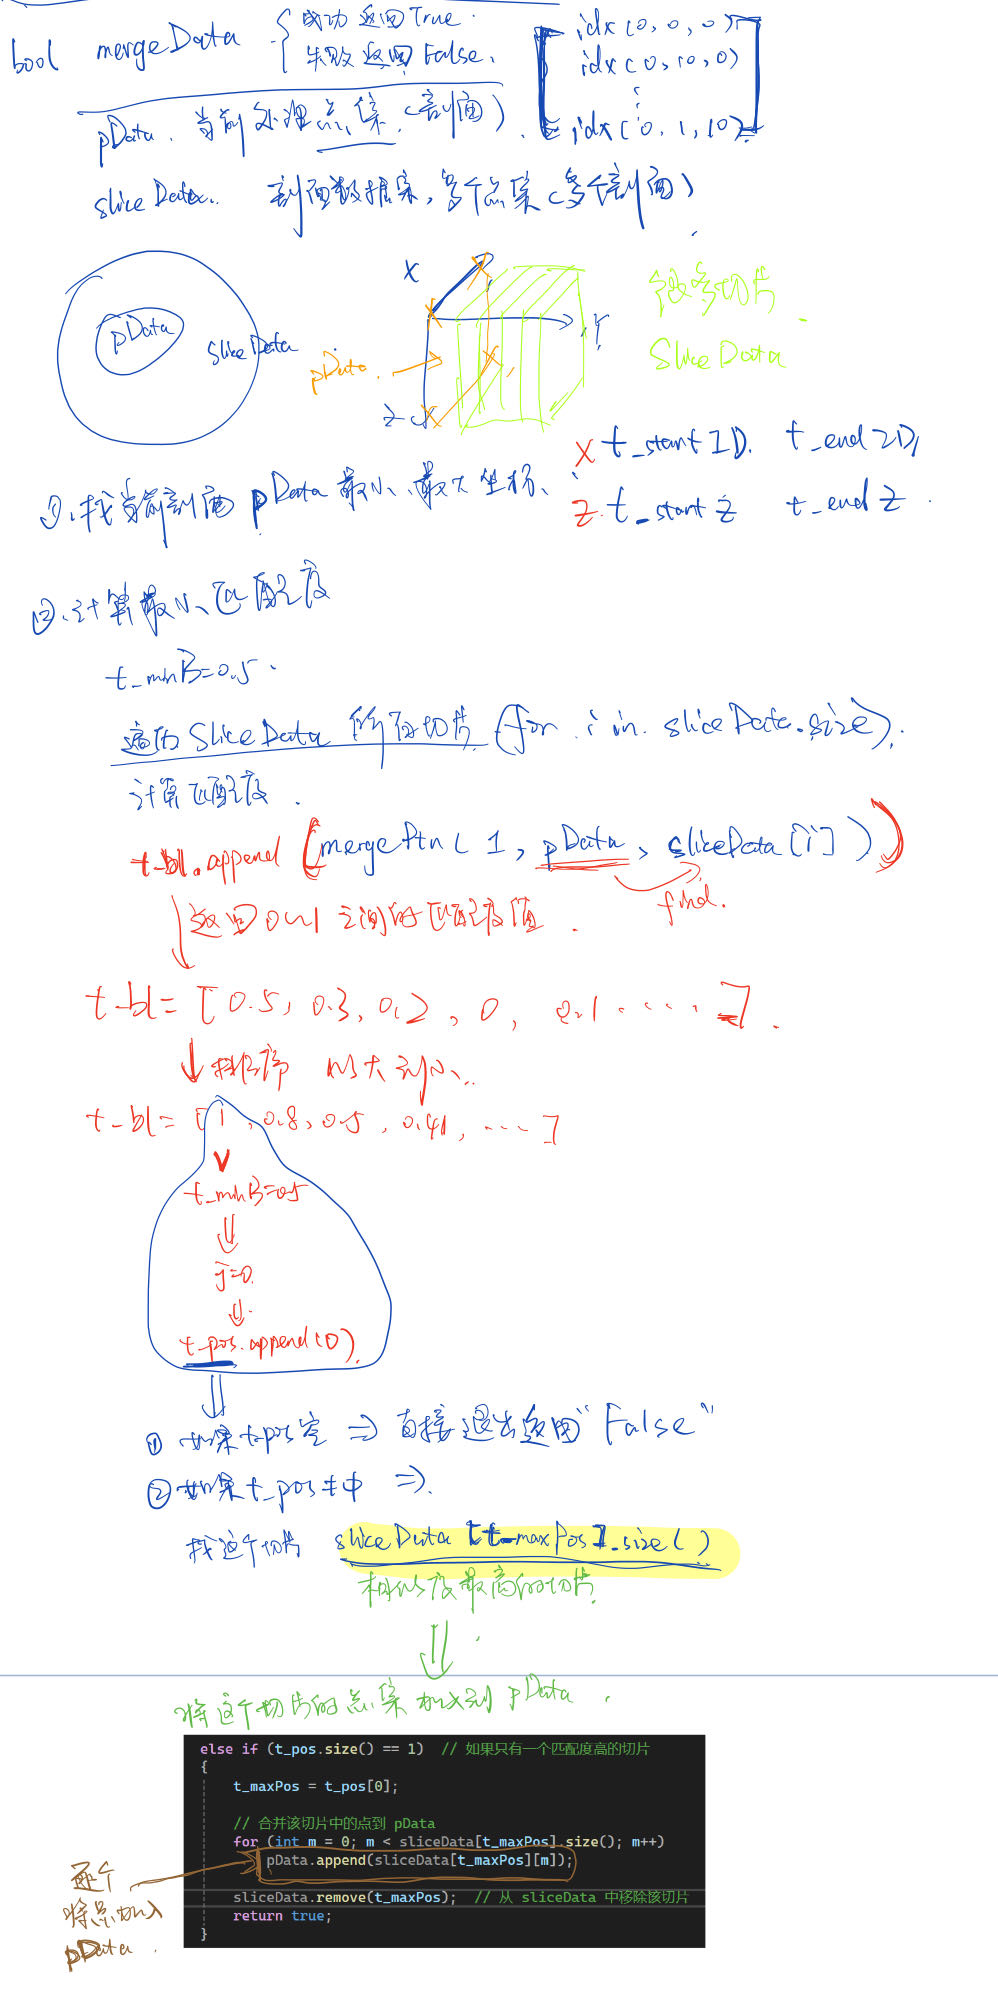 bool mergeData { 成功 返回True.
失败 返回False.
[ idx(0,0,0)
idx(0,10,0)
⋮
idx(0,1,10) ]
pData. 当前处理点集.(剖面).
sliceData. 剖面数据集,多个点集(多个剖面)
pData
sliceData
X
Y
Z
pData.
很多切片
SliceData
①.找当前剖面pData最小、最大坐标、
X t_start2D. t_end2D,
Z. t_startz t_endz.
②.计算最小匹配度
t_minB=0.5.
遍历SliceData 所有切片 (for i in. sliceData.size).
计算匹配度.
t_bl.append (mergePtn(1, pData, sliceData[i]))
find.
返回0~1之间的匹配度值.
t_bl= [0.5, 0.3, 0.2, 0, 0.1 ..... ].
排序 从大到小.
t_bl= [1, 0.8, 0.5, 0.41, .... ]
t_minB=0.5
j=0.
t_pos.append(0).
① 如果t_pos空 => 直接退出返回"False"
② 如果t_pos中 =>.
找这个切片 sliceData[t_maxPos].size()
相似度最高的切片.
将这个切片的点集加入到pData.
else if (t_pos.size() == 1) // 如果只有一个匹配度高的切片
{
t_maxPos = t_pos[0];
// 合并该切片中的点到 pData
for (int m = 0; m < sliceData[t_maxPos].size(); m++)
pData.append(sliceData[t_maxPos][m]);
sliceData.remove(t_maxPos); // 从 sliceData 中移除该切片
return true;
}
逐个
将点加入
pData.